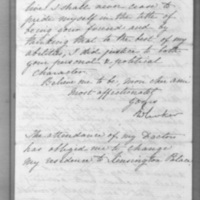 but I shall never cease to
pride myself in the title of
being your friend and by
thinking that to the best of my
ability, I did justice to both
your personal & political
character.
Believe me to be, now and ever
most affectionately
Yours
The attendance of my Doctors
has obliged me to change
my residence to Kensington Place